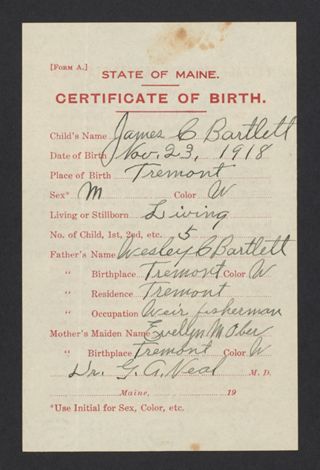 [Form A.]
STATE OF MAINE.
CERTIFICATE OF BIRTH.
Child's Name James C Bartlett
Date of Birth Nov. 23, 1918
Place of Birth Tremont
Sex* M Color W
Living or Stillborn Living
No. of Child, 1st, 2nd, etc. 5
Father's Name Wesley C Bartlett
" Birthplace Tremont Color W
" Residence Tremont
" Occupation Weir fisherman
Mother's Maiden Name Evelyn M Ober
" Birthplace Tremont Color W
Dr. G. A. Neal M. D.
Maine, 19
*Use Initial for Sex, Color, etc.